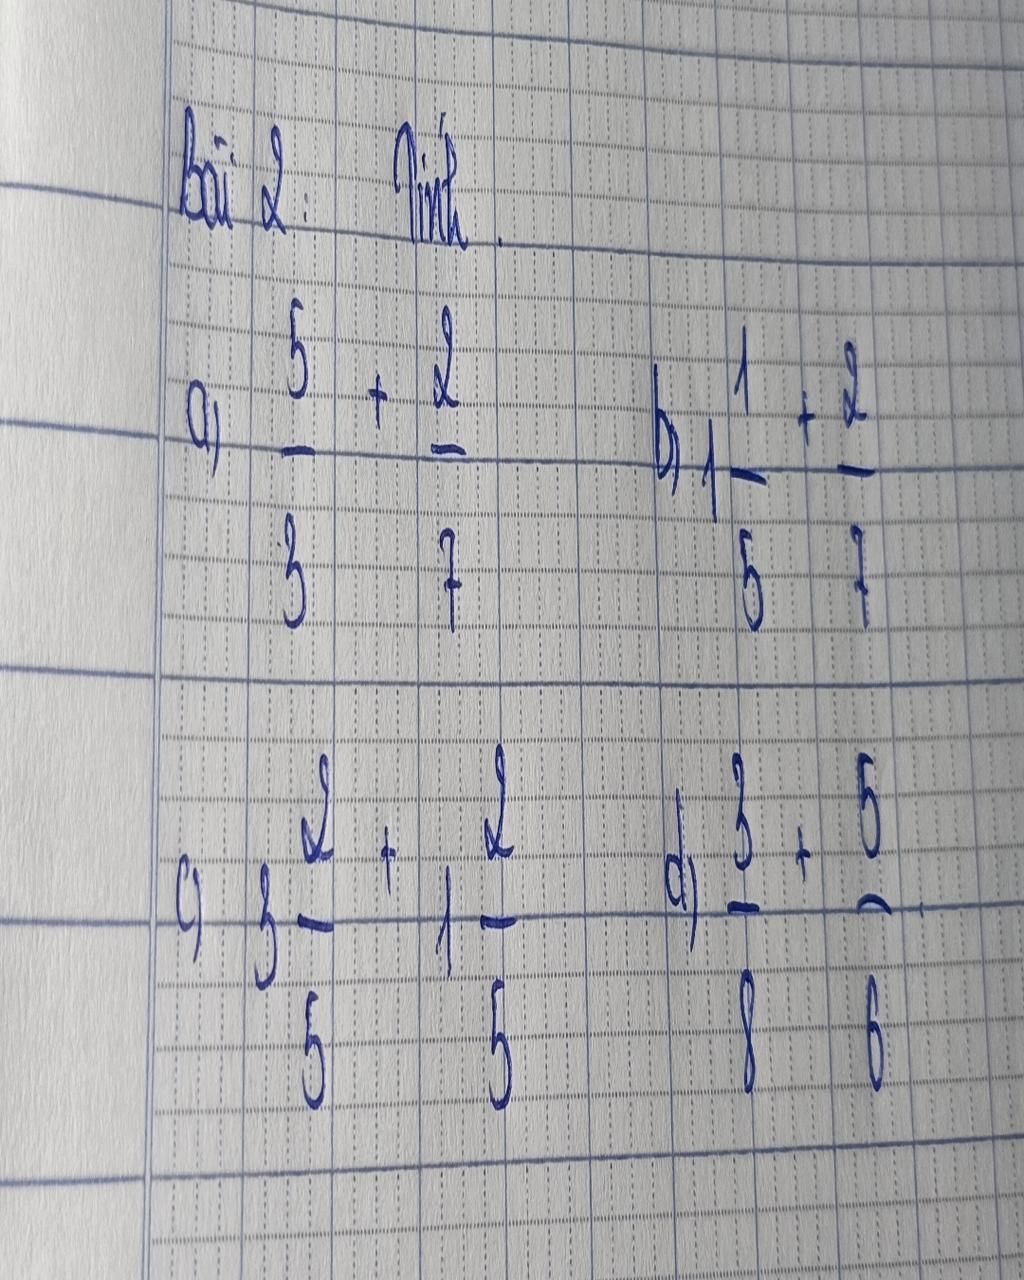 Bài 2: Tính.
a) 5/3 + 2/7 b) 1 1/5 + 2/7
c) 3 2/5 + 1 2/5 d) 3/8 + 5/6